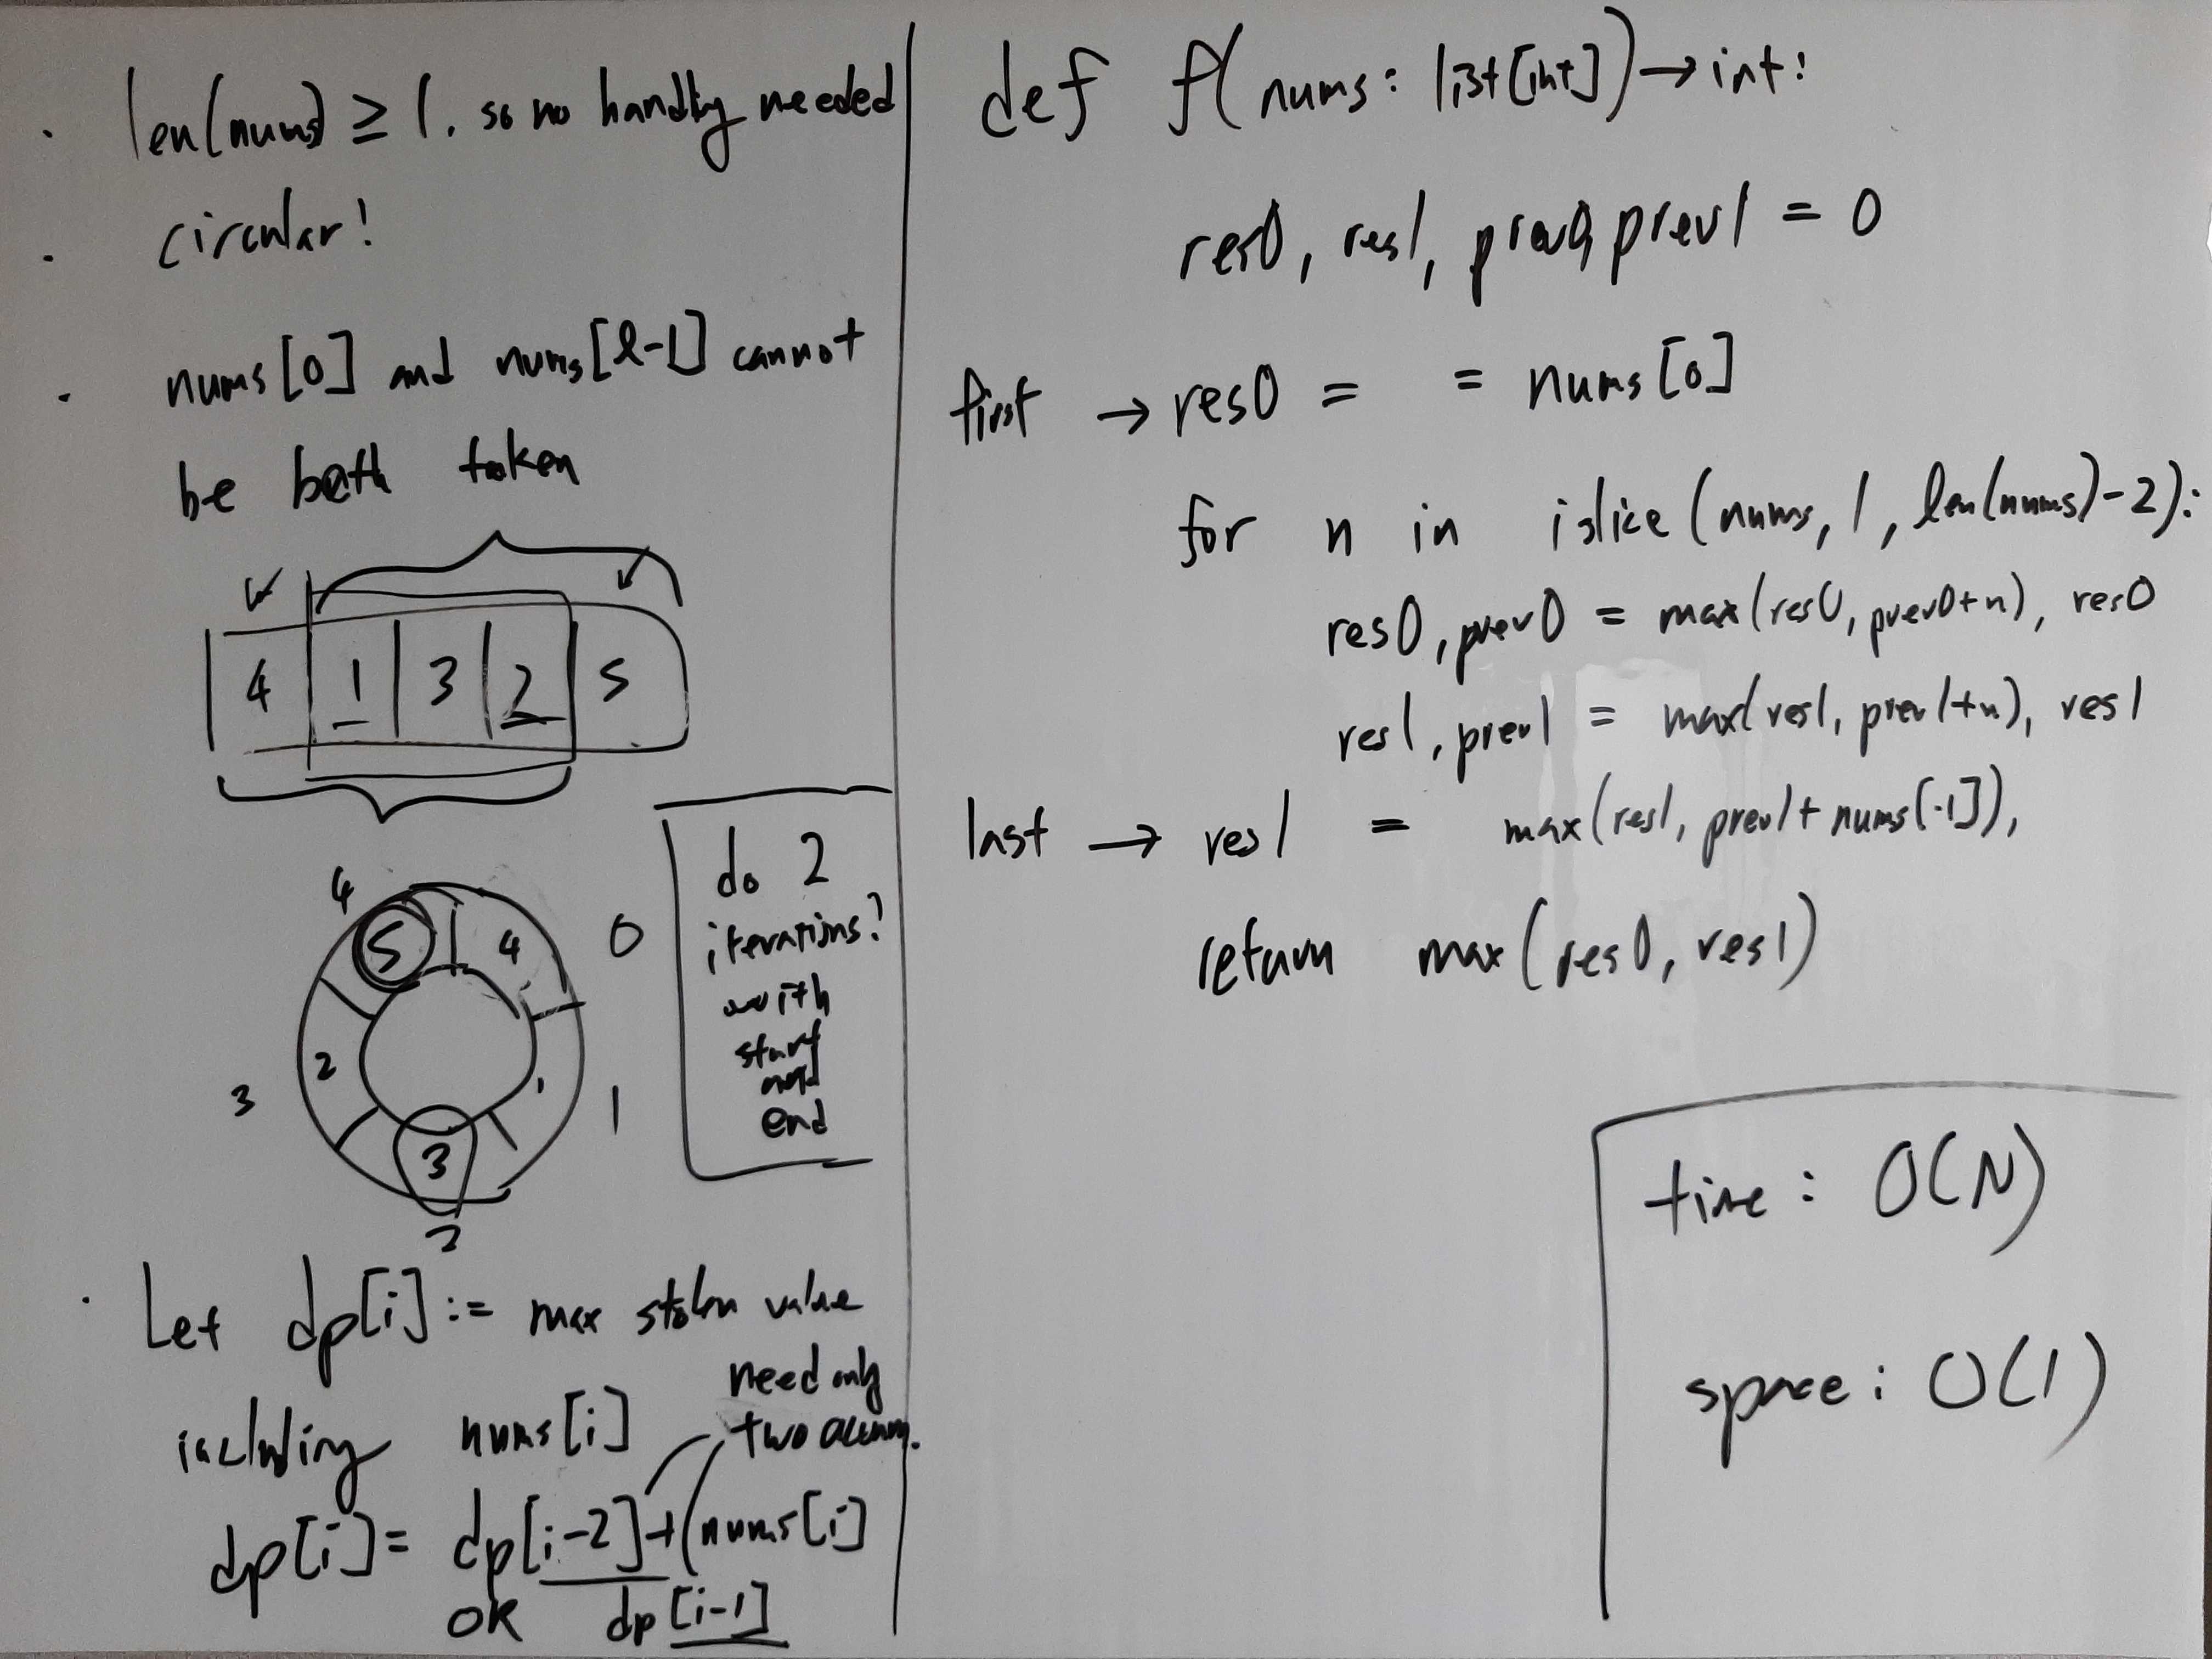 · len(nums) ≥ 1, so no handling needed
· circular!
· nums[0] and nums[l-1] cannot
be both taken
4 1 3 2 5
4
5 4 0
2 1
3 1
3
2
do 2
iterations?
with
start
and
end
· Let dp[i] := max stolen value
including nums[i]
need only
two accum.
dp[i] = dp[i-2] + nums[i]
OR dp[i-1]
def f(nums: list[int]) → int:
res0, res1, prev0, prev1 = 0
first → res0 = = nums[0]
for n in islice(nums, 1, len(nums)-2):
res0, prev0 = max(res0, prev0+n), res0
res1, prev1 = max(res1, prev1+n), res1
last → res1 = max(res1, prev1+nums[-1]),
return max(res0, res1)
time: O(N)
space: O(1)